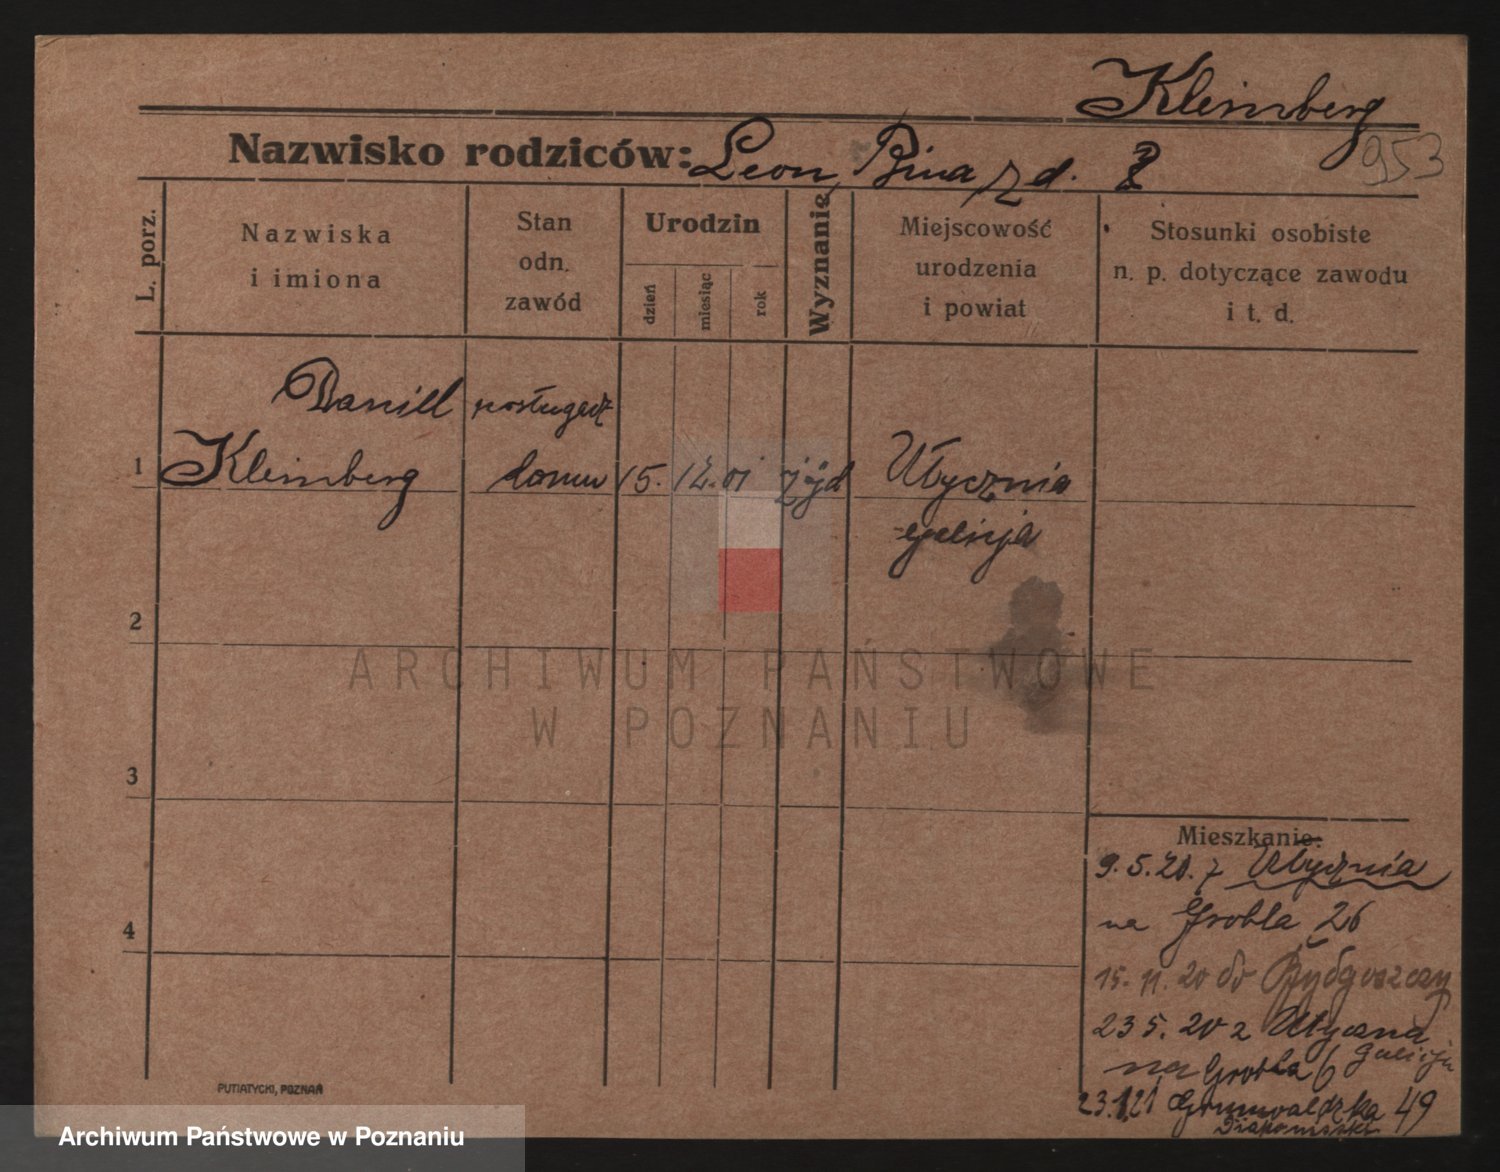 Kleinberg
953
Nazwisko rodziców: Leon, Bina z d. ?
L. porz.
Nazwiska
i imiona
Stan
odn.
zawód
Urodzin
dzień
miesiąc
rok
Wyznanie
Miejscowość
urodzenia
i powiat
Stosunki osobiste
n. p. dotyczące zawodu
i t. d.
1
Daniel
Kleinberg
domu
15. 12. 01
żyd
Utycznia
galicja
2
3
4
ARCHIWUM PAŃSTWOWE
W POZNANIU
Mieszkanie:
9.5.20. z Utycznia
na Grobla 26
15. 11. 20 do Bydgoszczy
23 5. 20 z Utyczna
na Grobla 6 galicja
23.1.21 Grunwaldzka 49
PUTIATYCKI, POZNAŃ
Archiwum Państwowe w Poznaniu